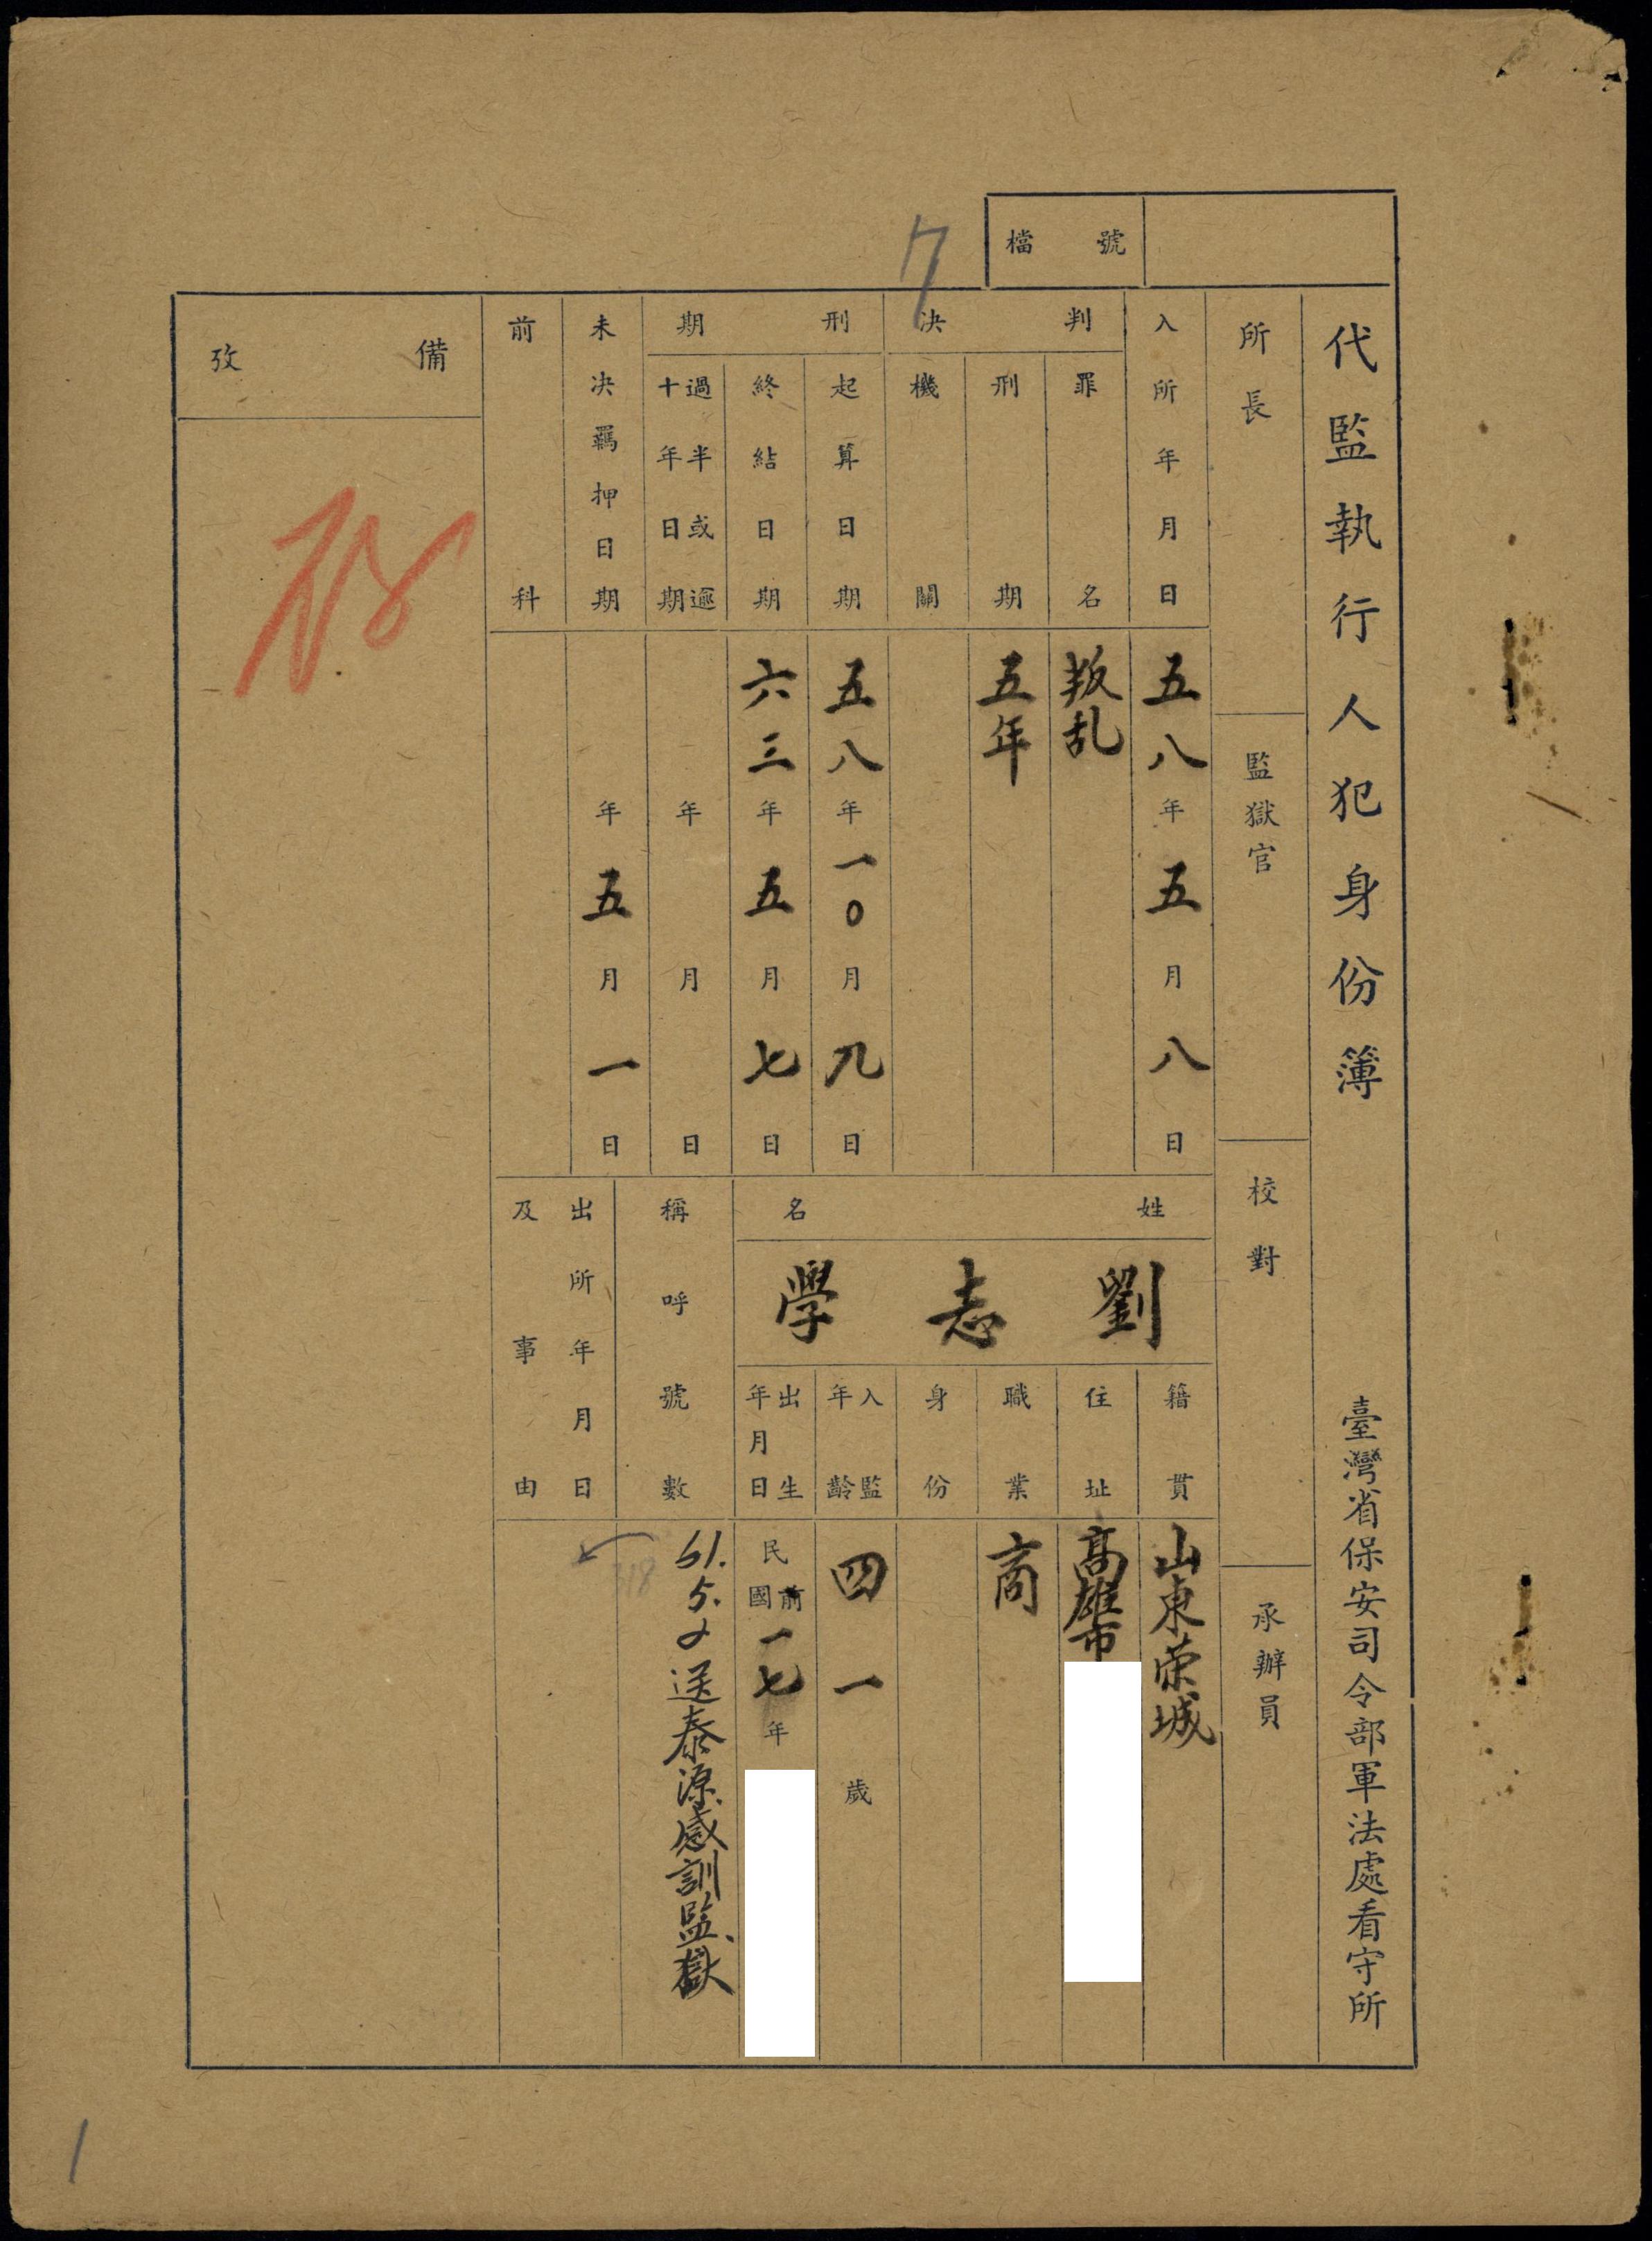 檔號
7
代監執行人犯身份簿 臺灣省保安司令部軍法處看守所
所長
監獄官
校對
承辦員
入所年月日 五八年五月八日
判決
罪名 叛乱
刑期 五年
機關
刑期
起算日期 五八年一〇月九日
終結日期 六三年五月七日
過半或逾十年日期 年 月 日
未决羈押日期 年五月一日
前科
姓名
劉志學
籍貫 山東荣城
住址 高雄市
職業 商
身份
入監年齡 四一歲
出生年月日 民國前一七年
稱呼號數 318
61.5.2送泰源感訓監獄
出所年月日
及事由
備攷
1